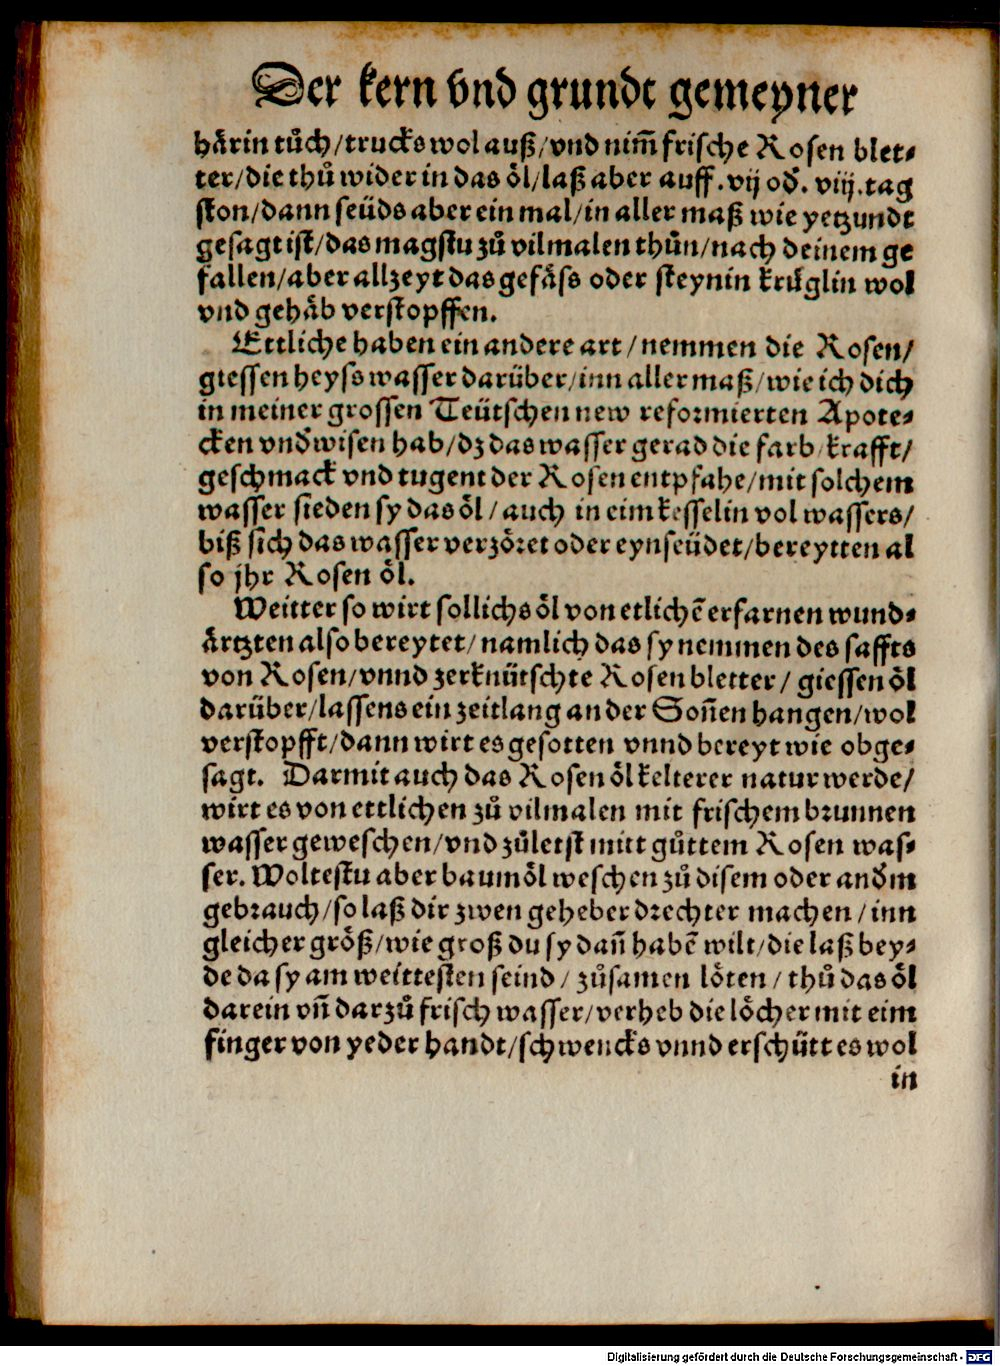 Der kern vnd grundt gemeyner
härin tůch/trucks wol auß/vnd nim̃ frische Rosen blet⸗
ter/die thů wider in das öl/laß aber auff.vij od̕. viij.tag
ston/dann seüds aber ein mal/in aller maß wie yetzundt
gesagt ist/das magstu zů vilmalen thůn/nach deinem ge
fallen/aber allzeyt das gefäss oder steynin krůglin wol
vnd gehäb verstopffen.
Ettliche haben ein andere art/nemmen die Rosen/
giessen heyss wasser darüber/inn aller maß/wie ich dich
in meiner grossen Teütschen new reformierten Apote⸗
cken vnd̕wisen hab/dz das wasser gerad die farb/krafft/
geschmack vnd tugent der Rosen entpfahe/mit solchem
wasser sieden sy das öl/auch in eim kesselin vol wassers/
biß sich das wasser verzöret oder eynseüdet/bereytten al
so jhr Rosen öl.
Weitter so wirt sollichs öl von etlichē erfarnen wund⸗
ärtzten also bereytet/namlich das sy nemmen des saffts
von Rosen/vnnd zerknütschte Rosen bletter/giessen öl
darüber/lassens ein zeitlang an der Soñen hangen/wol
verstopfft/dann wirt es gesotten vnnd bereyt wie obge⸗
sagt. Darmit auch das Rosen öl kelterer natur werde/
wirt es von ettlichen zů vilmalen mit frischem brunnen
wasser geweschen/vnd zůletst mitt gůttem Rosen was⸗
ser. Woltestu aber baumöl weschen zů disem oder and̕m
gebrauch/so laß dir zwen geheber drechter machen/inn
gleicher größ/wie groß du sy dañ habē wilt/die laß bey⸗
de da sy am weittesten seind/zůsamen löten/thů das öl
darein vñ darzů frisch wasser/verheb die löcher mit eim
finger von yeder handt/schwencks vnnd erschütt es wol
in
Digitalisierung gefördert durch die Deutsche Forschungsgemeinschaft - DFG